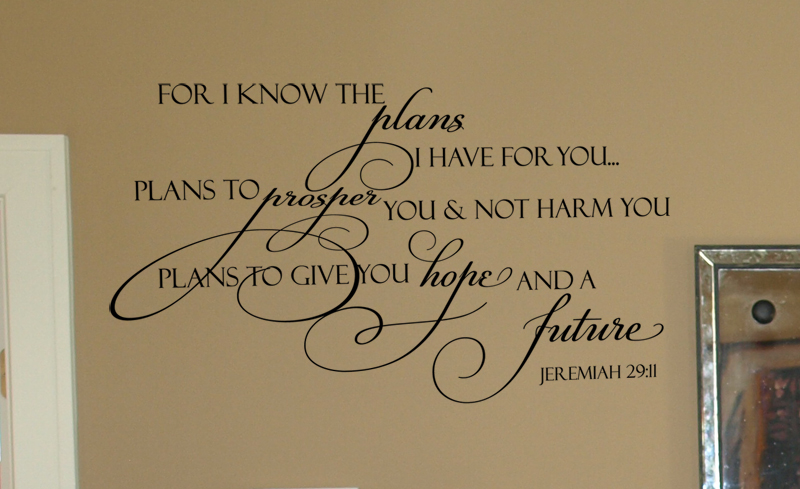 FOR I KNOW THE
plans
I HAVE FOR YOU...
PLANS TO prosper YOU & NOT HARM YOU
PLANS TO GIVE YOU hope AND A
future
JEREMIAH 29:11